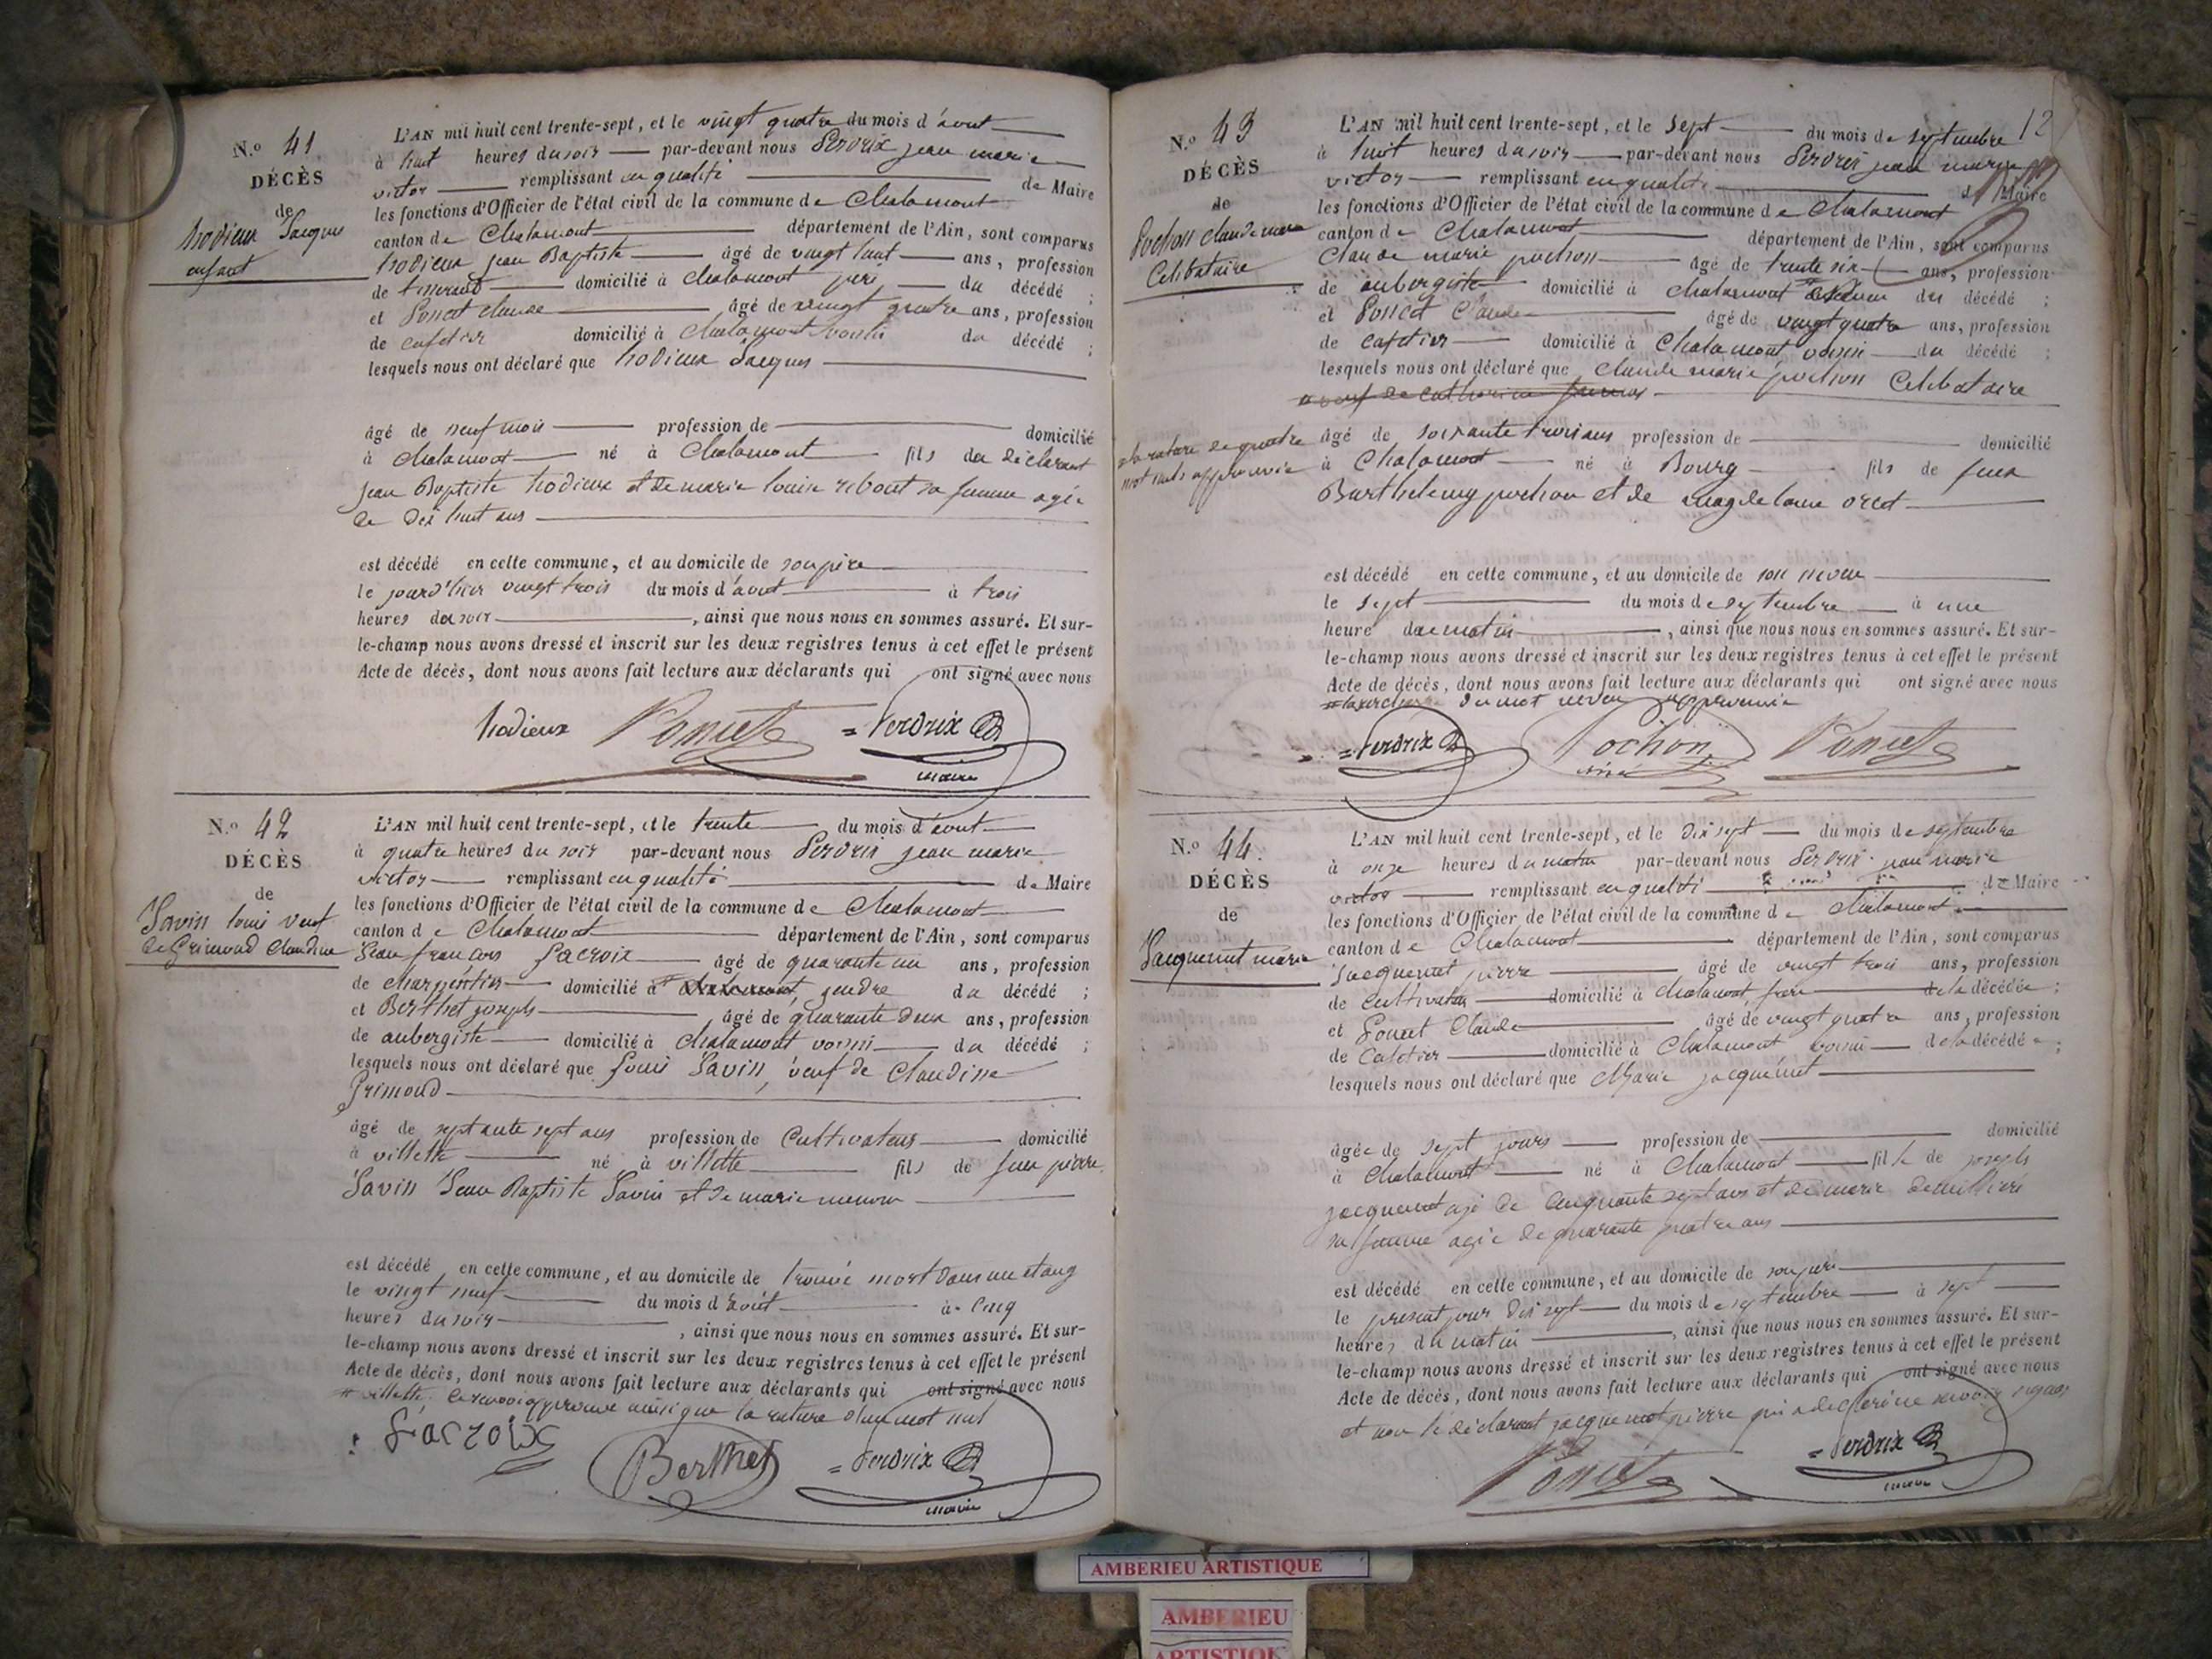 N.o 41
DÉCÈS
de
hodieux Jacques
enfant
L'AN mil huit cent trente-sept, et le vingt quatre du mois d'aout
à huit heures du soir par-devant nous Perdrix jean marie
victor remplissant en qualité de Maire
les fonctions d'Officier de l'état civil de la commune de Chalamont
canton de Chalamont département de l'Ain, sont comparus
hodieux jean Baptiste âgé de vingt huit ans, profession
de tisserand domicilié à Chalamont père du décédé ;
et Poncet claude âgé de vingt quatre ans, profession
de cafetier domicilié à Chalamont voisin du décédé ;
lesquels nous ont déclaré que hodieux Jacques
âgé de neuf mois profession de domicilié
à Chalamont né à Chalamont fils du déclarant
jean Baptiste hodieux et de marie louise rebout sa femme agée
de dix huit ans
est décédé en cette commune, et au domicile de son père
le jourd'hier vingt trois du mois d'aout à trois
heures du soir, ainsi que nous nous en sommes assuré. Et sur-
le-champ nous avons dressé et inscrit sur les deux registres tenus à cet effet le présent
Acte de décès, dont nous avons fait lecture aux déclarants qui ont signé avec nous
hodieux Poncet Perdrix
maire
N.o 42
DÉCÈS
de
Savin louis veuf
de Grimoud Claudine
L'AN mil huit cent trente-sept, et le trente du mois d'aout
à quatre heures du soir par-devant nous Perdrix jean marie
victor remplissant en qualité de Maire
les fonctions d'Officier de l'état civil de la commune de Chalamont
canton de Chalamont département de l'Ain, sont comparus
Jean francois Lacroix âgé de quarante un ans, profession
de charpentier domicilié à # Chalamont gendre du décédé ;
et Berthet joseph âgé de quarante deux ans, profession
de aubergiste domicilié à Chalamont voisin du décédé ;
lesquels nous ont déclaré que Louis Savin, veuf de Claudine
Grimoud
âgé de septante sept ans profession de Cultivateur domicilié
à villette né à villette fils de feu pierre
Savin Jean Baptiste Savin et de marie
est décédé en cette commune, et au domicile de trouvé mort dans un etang
le vingt neuf du mois d'Août à cinq
heures du soir, ainsi que nous nous en sommes assuré. Et sur-
le-champ nous avons dressé et inscrit sur les deux registres tenus à cet effet le présent
Acte de décès, dont nous avons fait lecture aux déclarants qui ont signé avec nous
# villette. le renvoi approuvé ainsi que la rature d'un mot nul
Lacroix Berthet Perdrix
maire
12
N.o 43
DÉCÈS
de
Pochon claude marie
Celibataire
L'AN mil huit cent trente-sept, et le sept du mois de septembre
à huit heures du soir par-devant nous Perdrix jean marie
victor remplissant en qualité de Maire
les fonctions d'Officier de l'état civil de la commune de Chalamont
canton de Chalamont département de l'Ain, sont comparus
Claude marie pochon âgé de trente six ans, profession
de aubergiste domicilié à chalamont neveu du décédé ;
et Poncet Claude âgé de vingt quatre ans, profession
de cafetier domicilié à Chalamont voisin du décédé ;
lesquels nous ont déclaré que claude marie pochon Celibataire
veuf de catherine
la rature de quatre
mot nuls approuvée
âgé de soixante trois ans profession de domicilié
à Chalamont né à Bourg fils de feux
Barthelemy pochon et de magdelaine
est décédé en cette commune, et au domicile de son neveu
le sept du mois de septembre à une
heure du matin, ainsi que nous nous en sommes assuré. Et sur-
le-champ nous avons dressé et inscrit sur les deux registres tenus à cet effet le présent
Acte de décès, dont nous avons fait lecture aux déclarants qui ont signé avec nous
# la surcharge du mot neveu approuvée
Perdrix Pochon Poncet
N.o 44.
DÉCÈS
de
Jacquemet marie
L'AN mil huit cent trente-sept, et le dix sept du mois de septembre
à onze heures du matin par-devant nous Perdrix jean marie
victor remplissant en qualité de Maire
les fonctions d'Officier de l'état civil de la commune de Chalamont
canton de Chalamont département de l'Ain, sont comparus
Jacquemet pierre âgé de vingt trois ans, profession
de Cultivateur domicilié à chalamont, frère de la décédée ;
et Poncet Claude âgé de vingt quatre ans, profession
de Cafetier domicilié à Chalamont voisin de la décédée ;
lesquels nous ont déclaré que Marie jacquemet
âgée de sept jours profession de domicilié
à Chalamont né à Chalamont fille de joseph
jacquemet agé de cinquante sept ans et de marie
sa femme agée de quarante quatre ans
est décédé en cette commune, et au domicile de son père
le present jour dix sept du mois de septembre à sept
heures du matin, ainsi que nous nous en sommes assuré. Et sur-
le-champ nous avons dressé et inscrit sur les deux registres tenus à cet effet le présent
Acte de décès, dont nous avons fait lecture aux déclarants qui ont signé avec nous
et non le déclarant jacquemet pierre qui a déclaré ne savoir signer
Poncet Perdrix
maire
AMBERIEU ARTISTIQUE
AMBERIEU
ARTISTIQUE